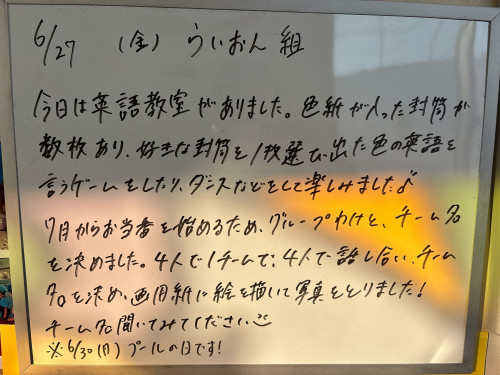 6/27 (金) らいおん組
今日は英語教室がありました。色紙が入った封筒が
数枚あり、好きな封筒を1枚選び、出た色の英語を
言うゲームをしたり、ダンスなどをして楽しみました♪
7月からお当番を始めるため、グループわけと、チーム名
を決めました。4人で1チームで、4人で話し合い、チーム
名を決め、画用紙に絵を描いて写真をとりました!
チーム名聞いてみてください☺
※6/30(月) プールの日です!